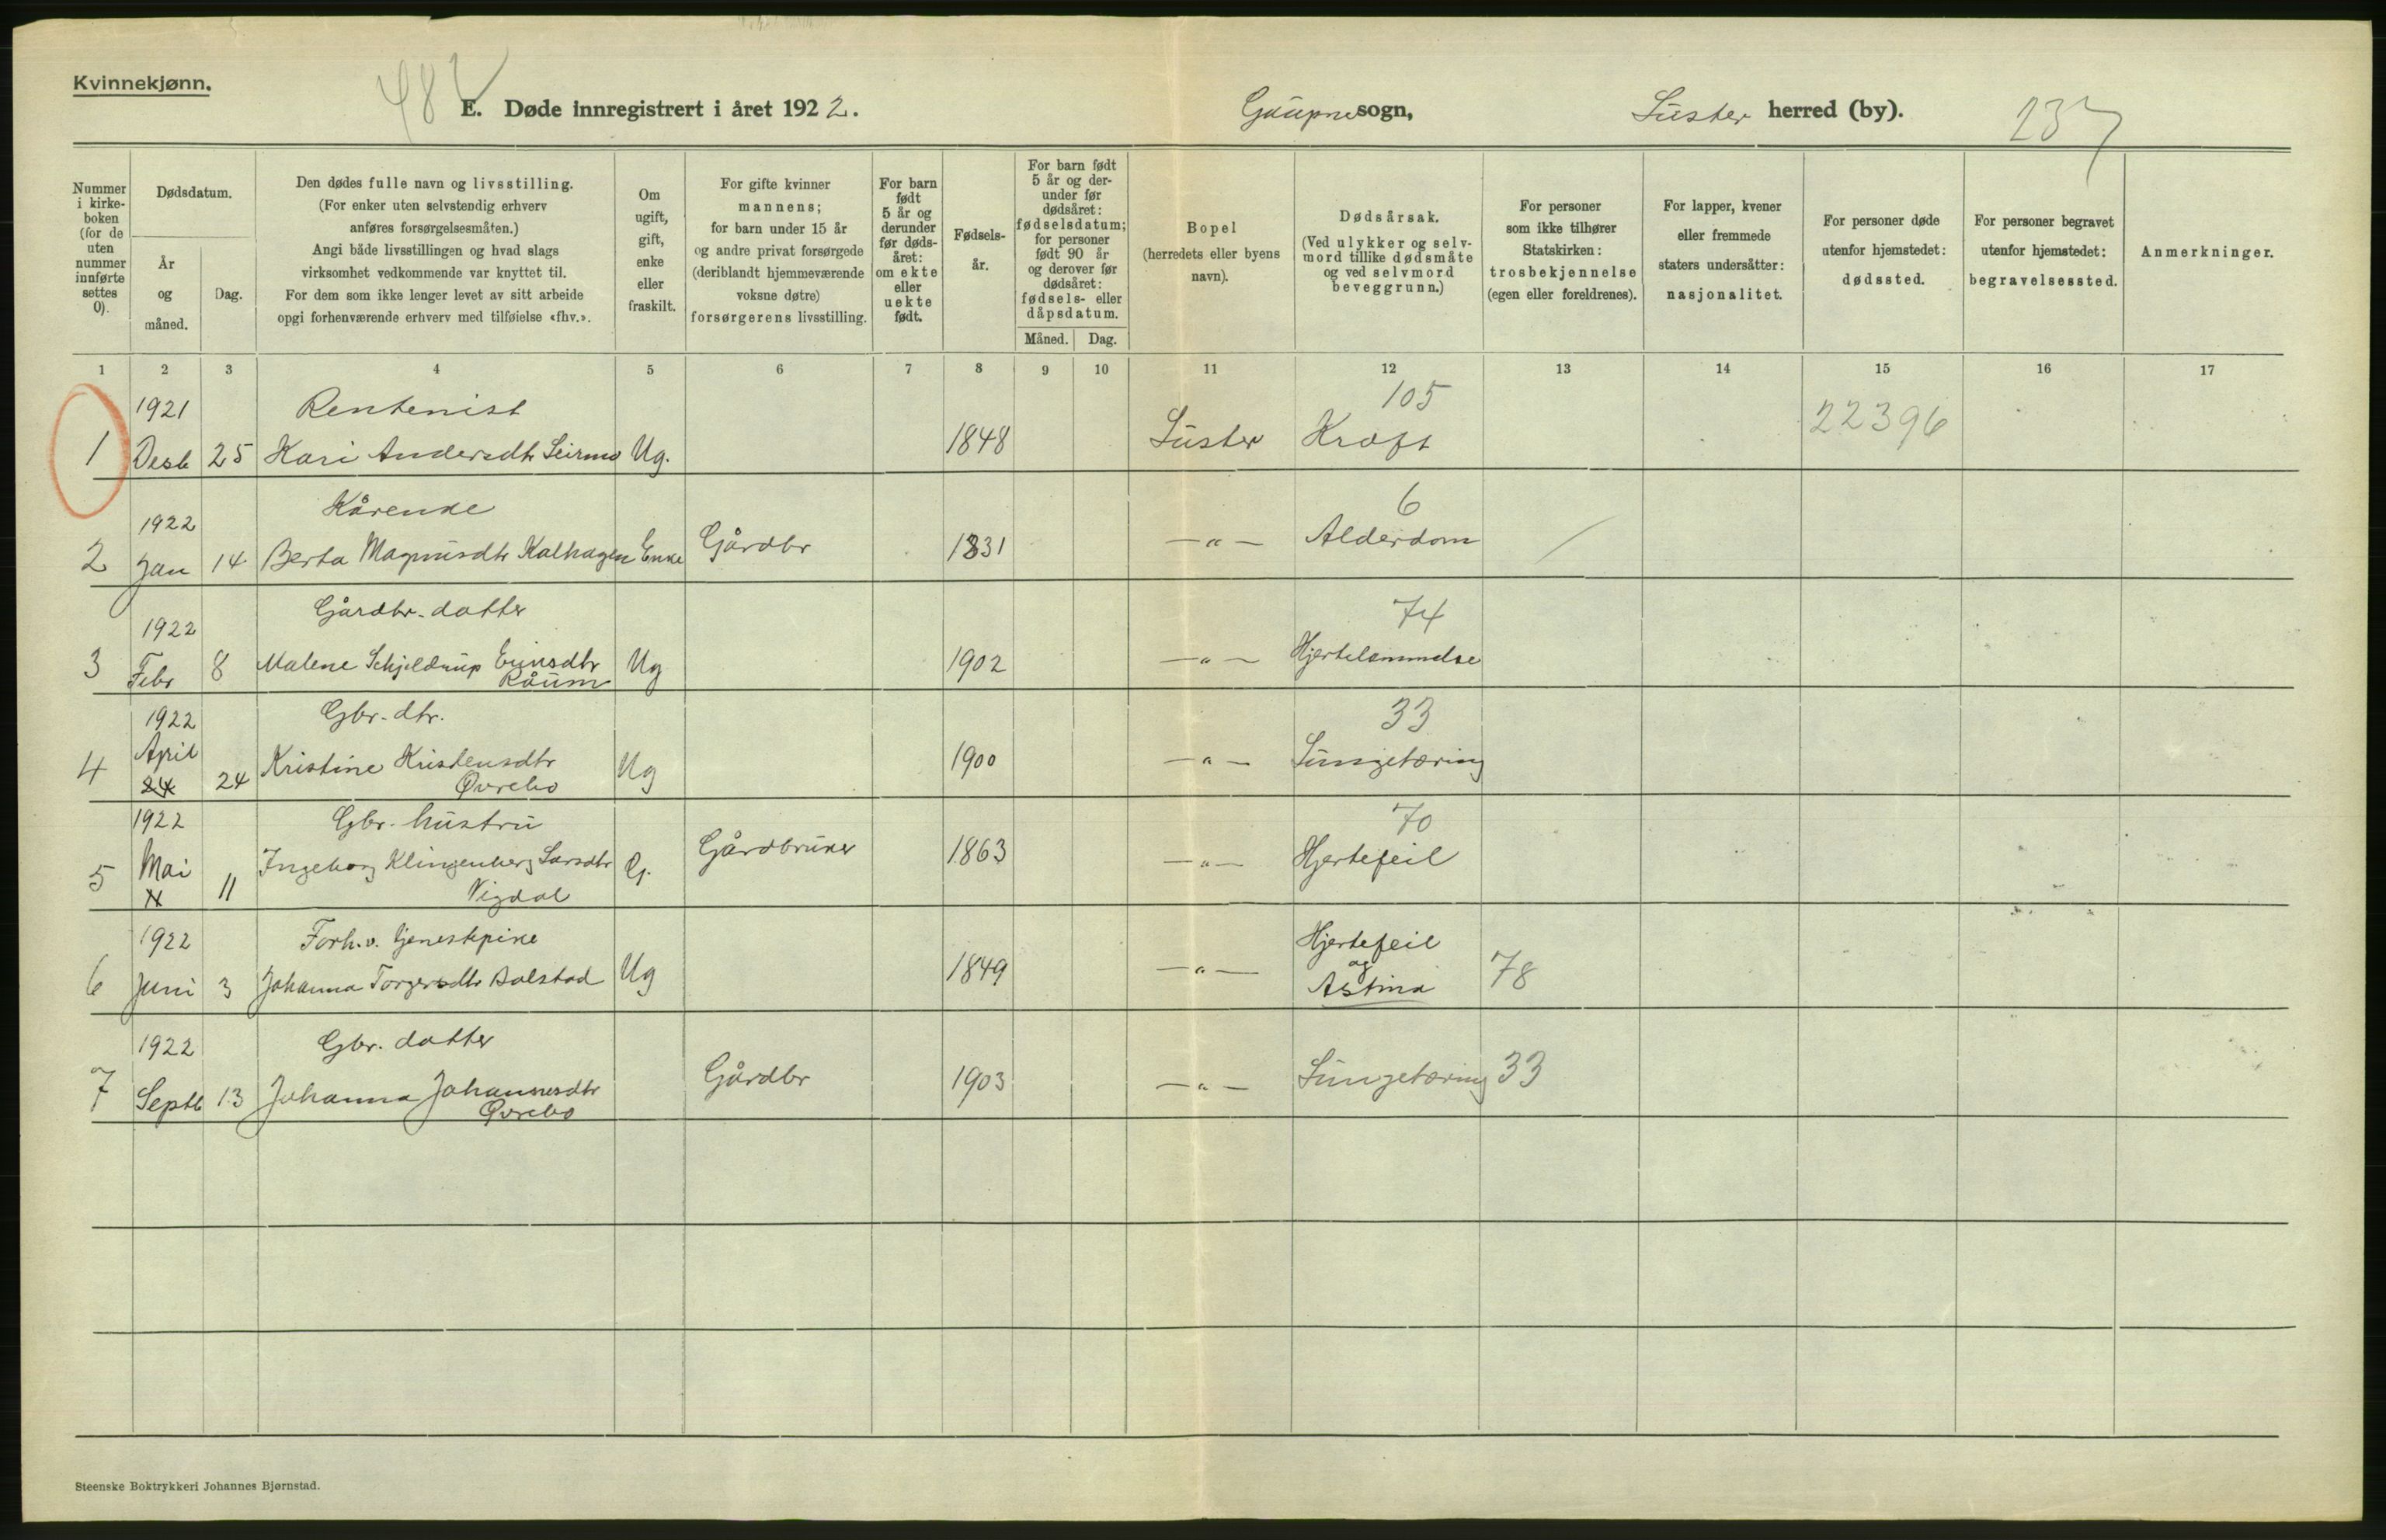 Kvinnekjønn.
E. Døde innregistrert i året 1922.
Gaupne sogn,
Luster herred (by).
237
Nummer i kirkeboken (for de uten nummer innførte settes 0).
Dødsdatum.
År og måned.
Dag.
Den dødes fulle navn og livsstilling.
(For enker uten selvstendig erhverv
anføres forsørgelsesmåten.)
Angi både livsstillingen og hvad slags
virksomhet vedkommende var knyttet til.
For dem som ikke lenger levet av sitt arbeide
opgi forhenværende erhverv med tilføielse «fhv.».
Om ugift, gift, enke eller fraskilt.
For gifte kvinner
mannens;
for barn under 15 år
og andre privat forsørgede
(deriblandt hjemmeværende
voksne døtre)
forsørgerens livsstilling.
For barn født 5 år og derunder før dødsåret: om ekte eller uekte født.
Fødselsår.
For barn født 5 år og derunder før dødsåret: fødselsdatum; for personer født 90 år og derover før dødsåret: fødsels- eller dåpsdatum.
Måned.
Dag.
Bopel
(herredets eller byens
navn).
Dødsårsak.
(Ved ulykker og selvmord tillike dødsmåte
og ved selvmord
beveggrunn.)
For personer
som ikke tilhører
Statskirken:
trosbekjennelse
(egen eller foreldrenes).
For lapper, kvener
eller fremmede
staters undersåtter:
nasjonalitet.
For personer døde
utenfor hjemstedet:
dødssted.
For personer begravet
utenfor hjemstedet:
begravelsessted.
Anmerkninger.
1 2 3 4 5 6 7 8 9 10 11 12 13 14 15 16 17
1921 Rentenist 105 22396
1 Desb 25 Kari Andersdtr Leirmo Ug. 1848 Luster Kræft
1922 Kårenke 6
2 Jan 14 Berta Magnusdtr Kalhagen Enke Gårdbr 1831 —"— Alderdom
1922 Gårdbr. datter 74
3 Febr 8 Malene Schjeldrup Råum Ug 1902 —"— Hjertelammelse
1922 Gbr. dtr. 33
4 April 24 24 Kristine Kristensdtr Øvrebo Ug 1900 —"— Lungetæring
1922 Gbr. hustru 70
5 Mai 11 11 Ingeborg Klingenberg Larsdtr Vigdal G. Gårdbruker 1863 —"— Hjertefeil
1922 Forh.v. tjenestepike
6 Juni 3 Johanna Torgersdtr Bolstad Ug 1849 —"— Hjertefeil og Astma 78
1922 Gbr. datter
7 Septb 13 Johanna Johannesdtr Øvrebo Gårdbr 1903 —"— Lungetæring 33
Steenske Boktrykkeri Johannes Bjørnstad.